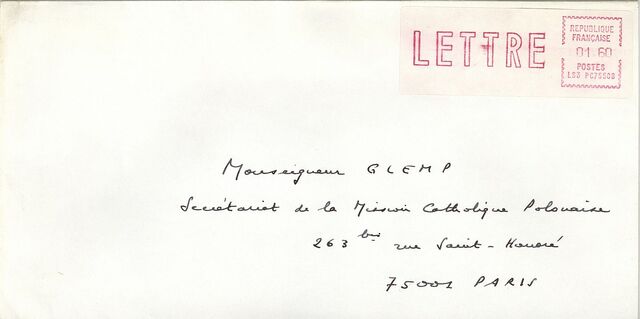 LETTRE
REPUBLIQUE
FRANÇAISE
01 60
POSTES
LS3 PC75508
Monseigneur GLEMP
Secrétariat de la Mission Catholique Polonaise
263 bis rue Saint-Honoré
75001 PARIS